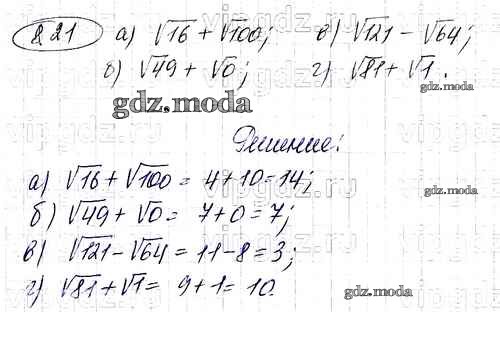 821 а) √16 + √100; в) √121 − √64;
б) √49 + √0; г) √81 + √1.
gdz.moda
Решение:
а) √16 + √100 = 4 + 10 = 14;
б) √49 + √0 = 7 + 0 = 7;
в) √121 − √64 = 11 − 8 = 3;
г) √81 + √1 = 9 + 1 = 10.
gdz.moda
gdz.moda